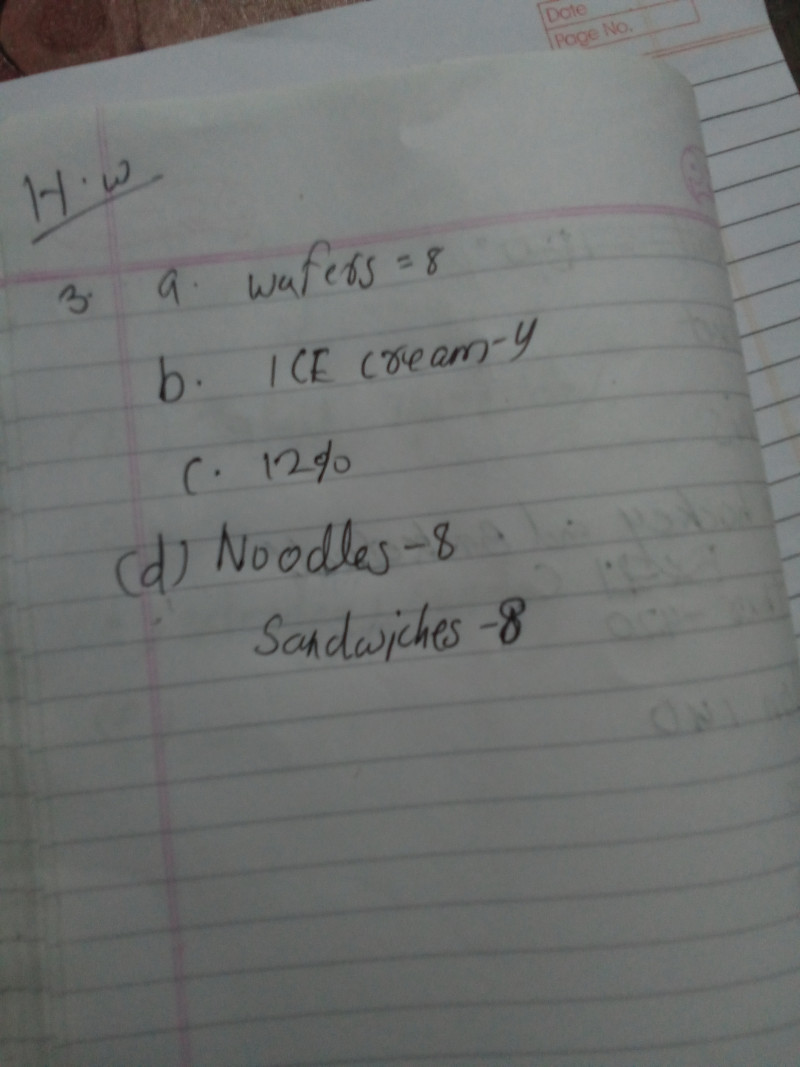 Date
Page No.
H.w
3. a. wafers = 8
b. ICE cream-4
c. 12%
(d) Noodles-8
Sandwiches-8